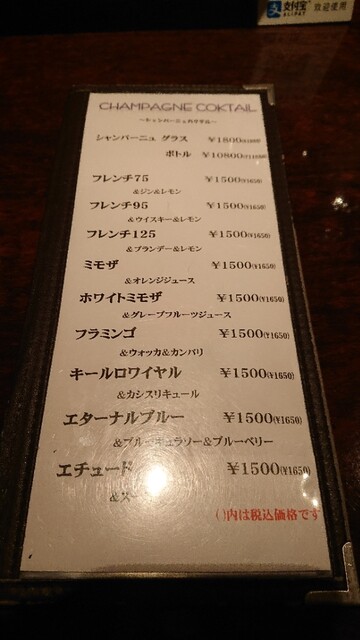 支付宝 欢迎使用
ALIPAY
CHAMPAGNE COKTAIL
~シャンパーニュカクテル~
シャンパーニュ グラス ￥1800
ボトル ￥10800
フレンチ75 ￥1500(¥1650)
&ジン&レモン
フレンチ95 ￥1500(¥1650)
&ウイスキー&レモン
フレンチ125 ￥1500(¥1650)
&ブランデー&レモン
ミモザ ￥1500(¥1650)
&オレンジジュース
ホワイトミモザ ￥1500(¥1650)
&グレープフルーツジュース
フラミンゴ ￥1500(¥1650)
&ウォッカ&カンパリ
キールロワイヤル ￥1500(¥1650)
&カシスリキュール
エターナルブルー ￥1500(¥1650)
&ブルーキュラソー&ブルーベリー
エチュード ￥1500(¥1650)
&ス
( )内は税込価格です